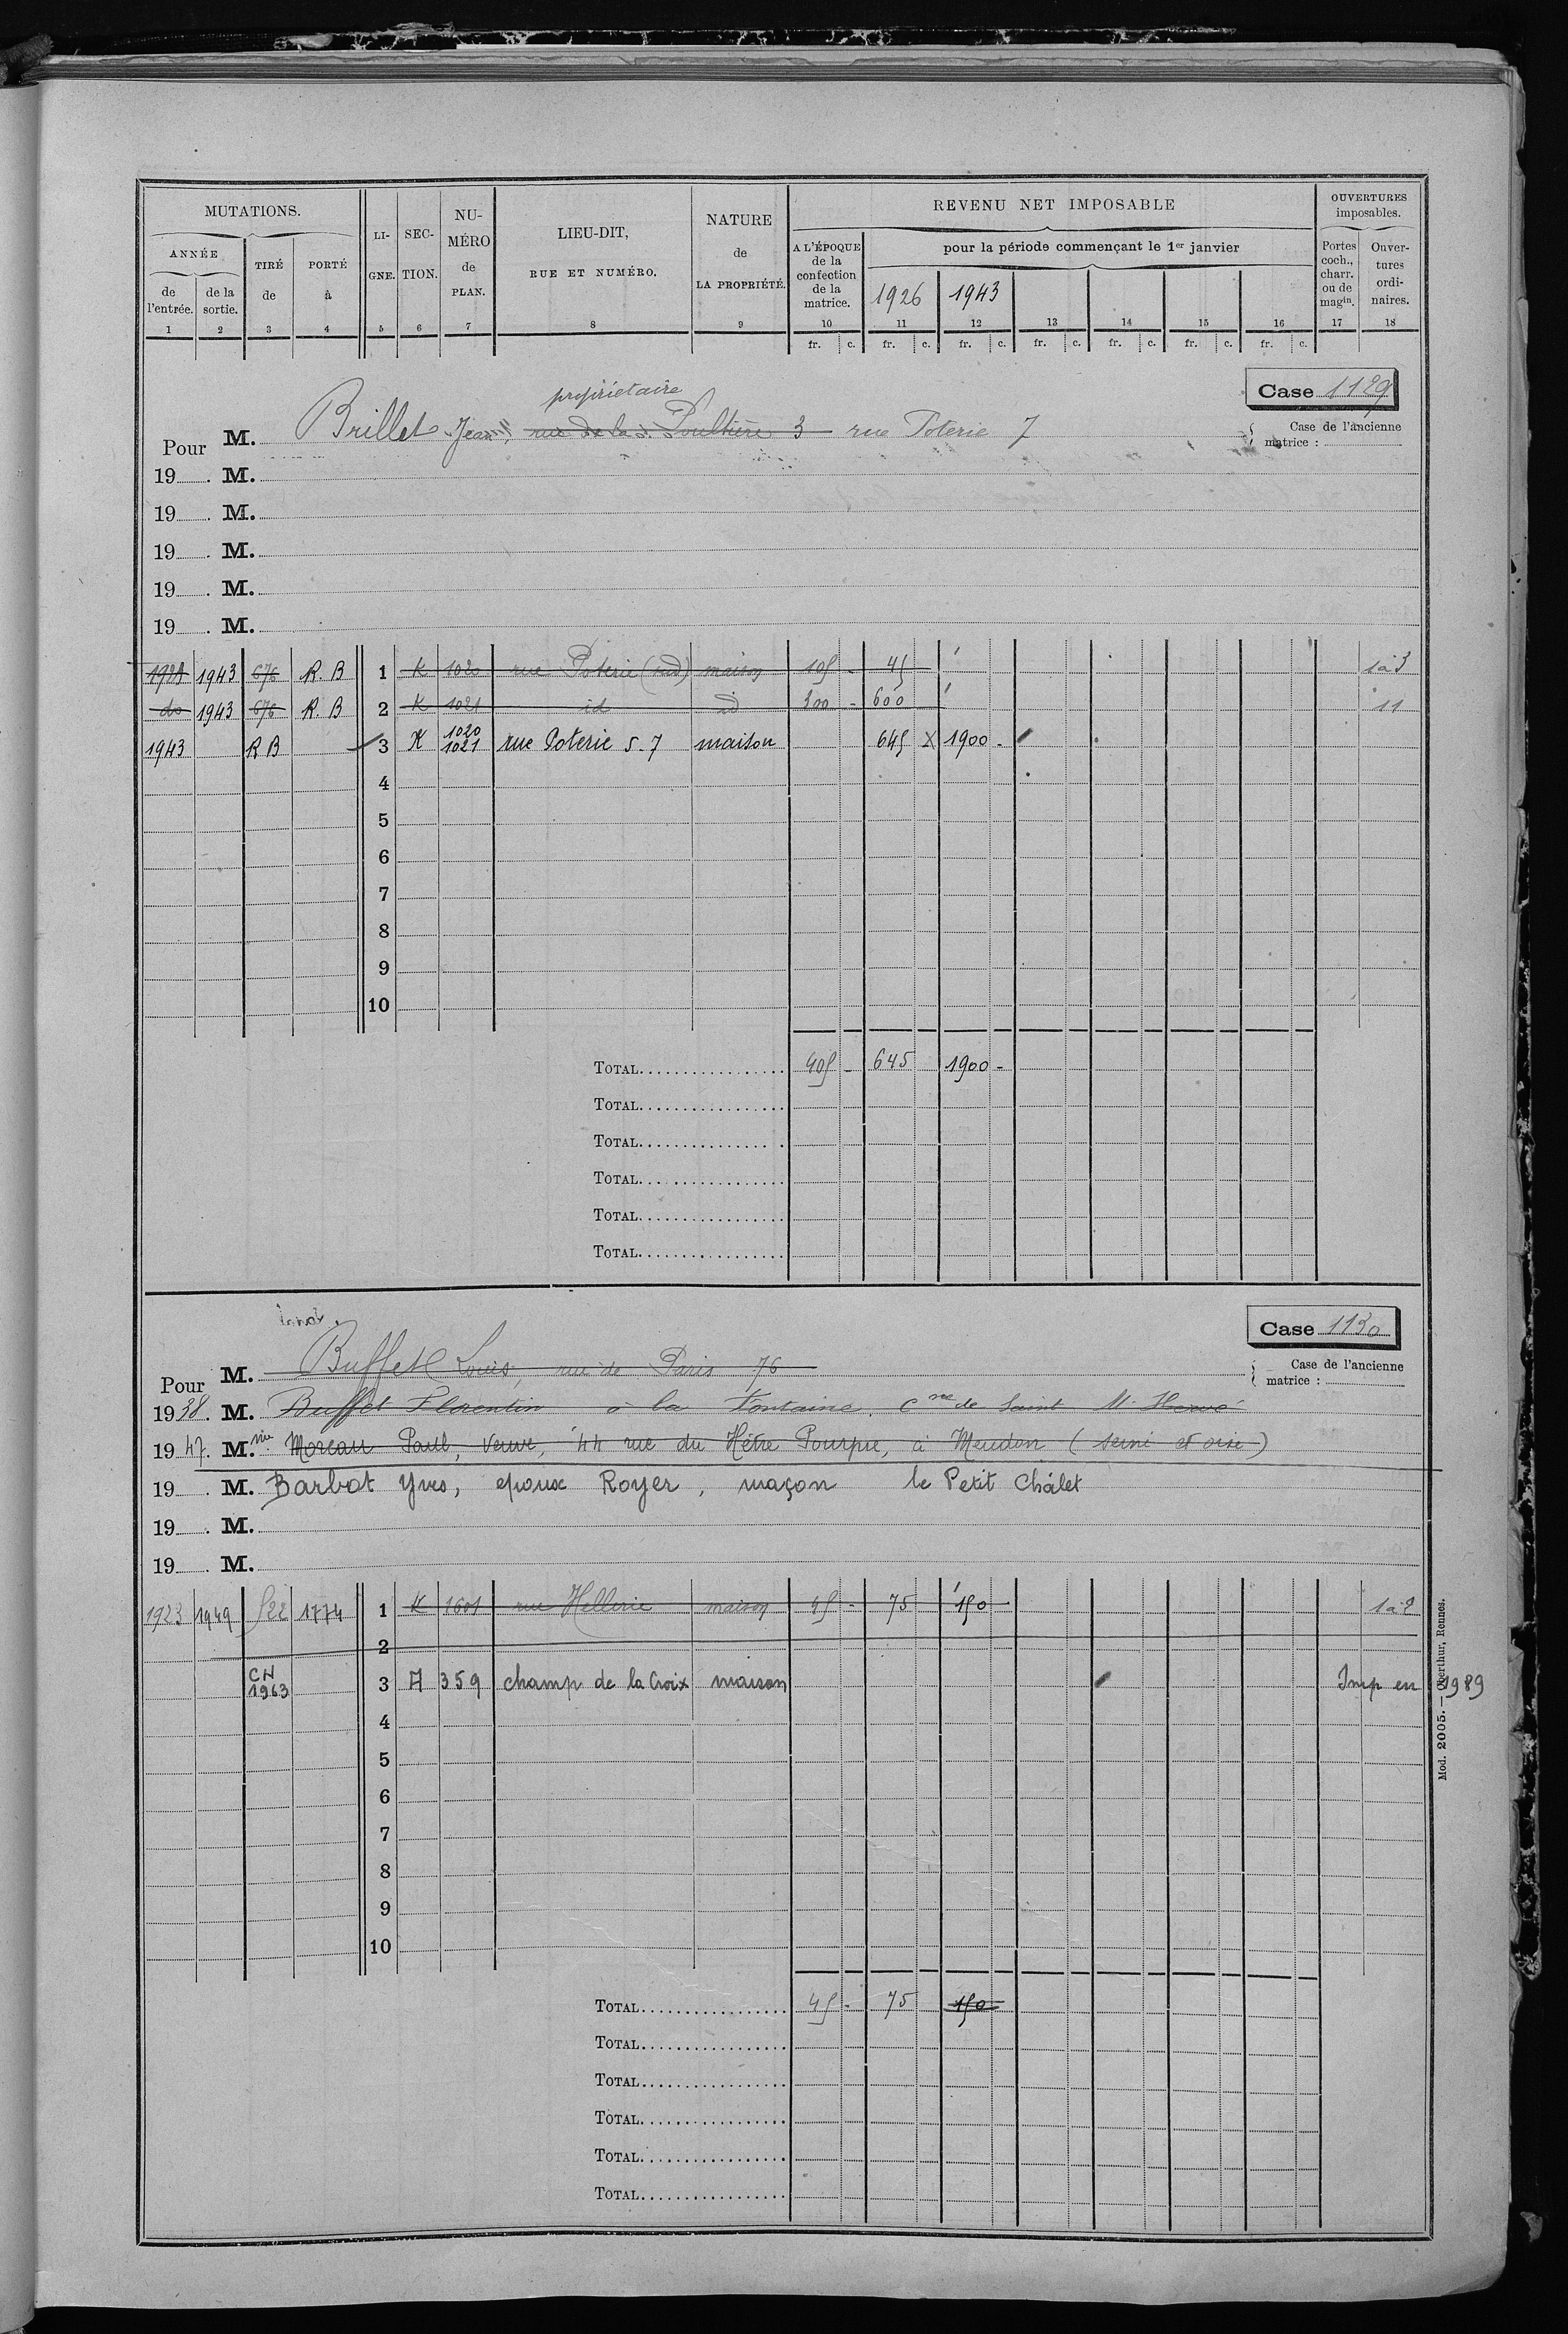 MUTATIONS.
ANNÉE
de l'entrée.
de la sortie.
TIRÉ de
PORTÉ à
LI-GNE.
SEC-TION.
NU-MÉRO de PLAN.
LIEU-DIT, RUE ET NUMÉRO.
NATURE de LA PROPRIÉTÉ.
REVENU NET IMPOSABLE
A L'ÉPOQUE de la confection de la matrice.
pour la période commençant le 1er janvier
1926 1943
OUVERTURES imposables.
Portes coch., charr. ou de magin.
Ouver-tures ordi-naires.
1 2 3 4 5 6 7 8 9 10 11 12 13 14 15 16 17 18
fr. c. fr. c. fr. c. fr. c. fr. c. fr. c. fr. c.
Case 1129
propriétaire
Pour M. Brillet Jean, rue de la Poultière 3 rue Poterie 7
Case de l'ancienne matrice :
19 . M.
19 . M.
19 . M.
19 . M.
19 . M.
1924 1943 676 R. B 1 K 1020 rue Poterie maison 105 - 45 1 à 3
do 1943 676 R. B 2 K 1021 id id 300 - 600 11
1943 R B 3 K 1020 1021 rue Poterie 5-7 maison 645 X 1900 -
4
5
6
7
8
9
10
TOTAL 405 - 645 1900 -
TOTAL
TOTAL
TOTAL
TOTAL
TOTAL
Case 1130
Pour M. Buffet Louis, rue de Paris 76
Case de l'ancienne matrice :
1938. M. Buffet Florentin à la Fontaine. Cne de Saint M. Hervé
1947. M. Moreau Paul, veuve, 44 rue du Hêtre Pourpre, à Meudon (seine et oise)
19 . M. Barbot Yves, epoux Royer, maçon le Petit Châlet
19 . M.
19 . M.
1923 1949 522 1774 1 K 1601 rue Hellerie maison 45 - 75 150 1 à 2
2
CN 1963 3 A 359 champ de la Croix maison Imp en 1989
4
5
6
7
8
9
10
TOTAL 45 - 75 150
TOTAL
TOTAL
TOTAL
TOTAL
TOTAL
Mod. 2005. — Oberthur, Rennes.